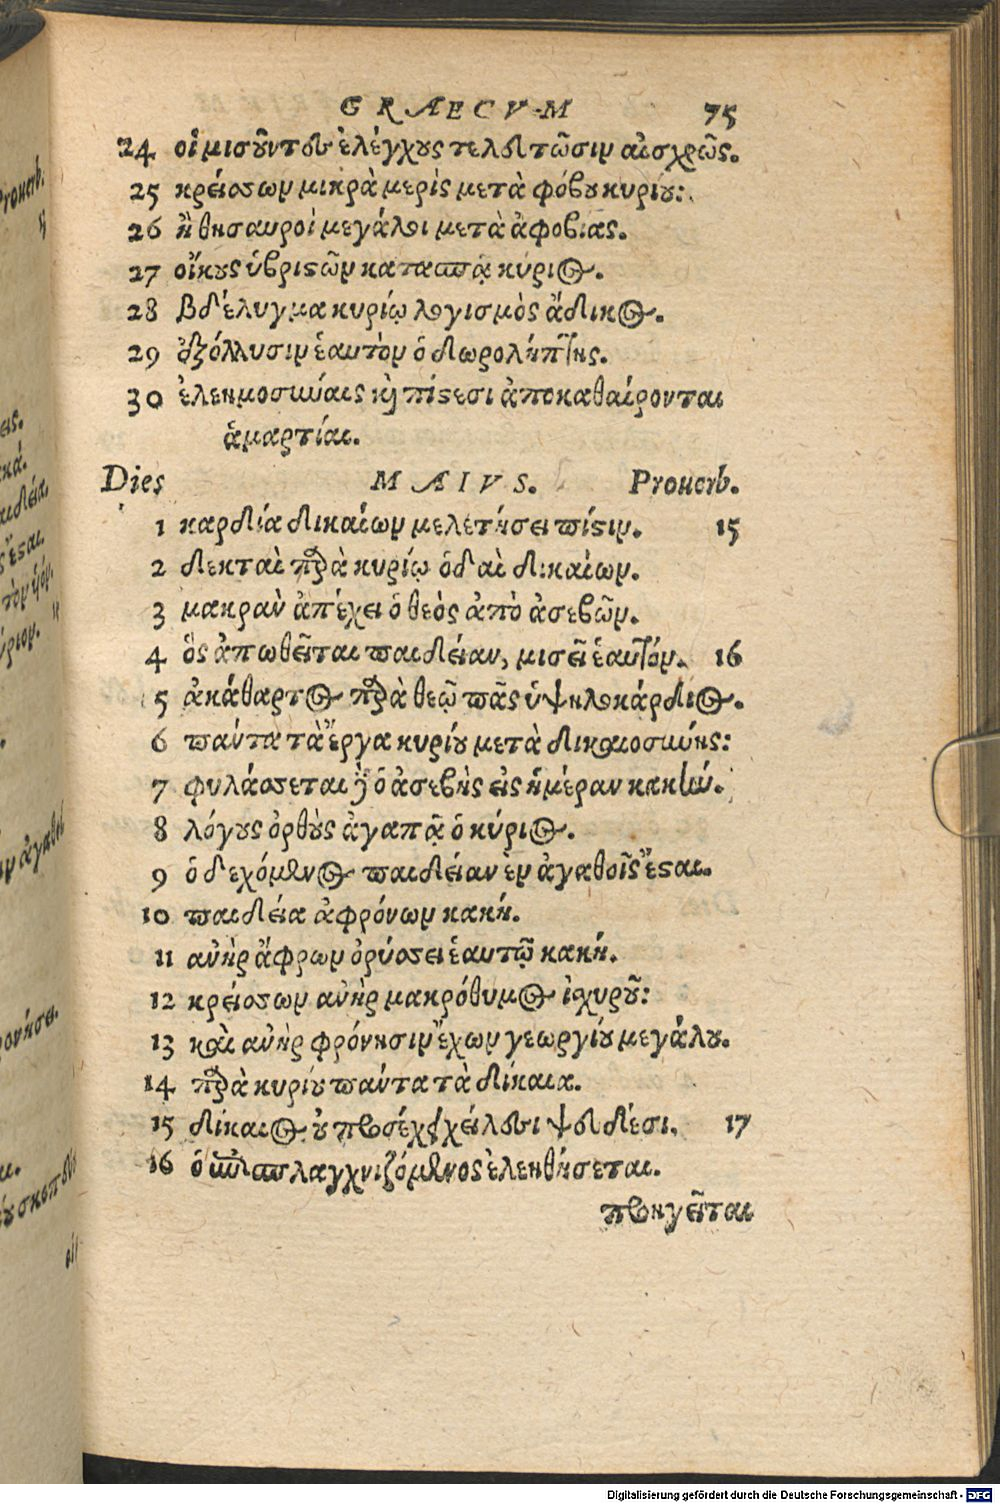 GRAECVM 75
24 οἱ μισοῦντες ἐλέγχους τελευτῶσιν αἰσχρῶς.
25 κρείσσων μικρὰ μερὶς μετὰ φόβου κυρίου:
26 ἢ θησαυροὶ μεγάλοι μετὰ ἀφοβίας.
27 οἴκους ὑβριστῶν κατασπᾷ κύριος.
28 βδέλυγμα κυρίῳ λογισμὸς ἄδικος.
29 ἐξόλλυσιν ἑαυτὸν ὁ δωρολήπτης.
30 ἐλεημοσύναις καὶ πίστεσι ἀποκαθαίρονται
ἁμαρτίαι.
Dies MAIVS. Prouerb.
1 καρδία δικαίων μελετήσει πίστιν. 15
2 δεκταὶ παρὰ κυρίῳ ὁδαὶ δικαίων.
3 μακρὰν ἀπέχει ὁ θεὸς ἀπὸ ἀσεβῶν.
4 ὃς ἀπωθεῖται παιδείαν, μισεῖ ἑαυτόν. 16
5 ἀκάθαρτος παρὰ θεῷ πᾶς ὑψηλοκάρδιος.
6 πάντα τὰ ἔργα κυρίου μετὰ δικαιοσύνης:
7 φυλάσσεται δὲ ὁ ἀσεβὴς εἰς ἡμέραν κακήν.
8 λόγους ὀρθοὺς ἀγαπᾷ ὁ κύριος.
9 ὁ δεχόμενος παιδείαν ἐν ἀγαθοῖς ἔσται.
10 παιδεία ἀφρόνων κακή.
11 ἀνὴρ ἄφρων ὀρύσσει ἑαυτῷ κακή.
12 κρείσσων ἀνὴρ μακρόθυμος ἰσχυροῦ:
13 καὶ ἀνὴρ φρόνησιν ἔχων γεωργίου μεγάλου.
14 παρὰ κυρίου πάντα τὰ δίκαια.
15 δίκαιος οὐ προσέχει χείλεσι ψευδέσι. 17
16 ὁ ἐπισπλαγχνιζόμενος ἐλεηθήσεται.
προηγεῖται